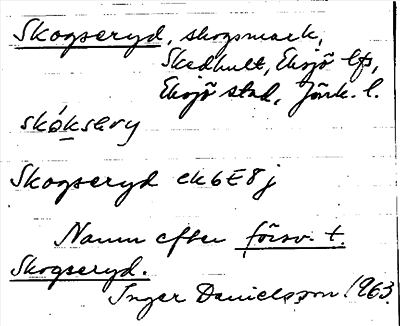 Skogseryd, skogsmark,
Skedhult, Eksjö lfs,
Eksjö stad, Jönk. l.
skóksery
Skogseryd ek 6E8j
Namn efter försv. t.
Skogseryd.
Inger Danielsson 1963.